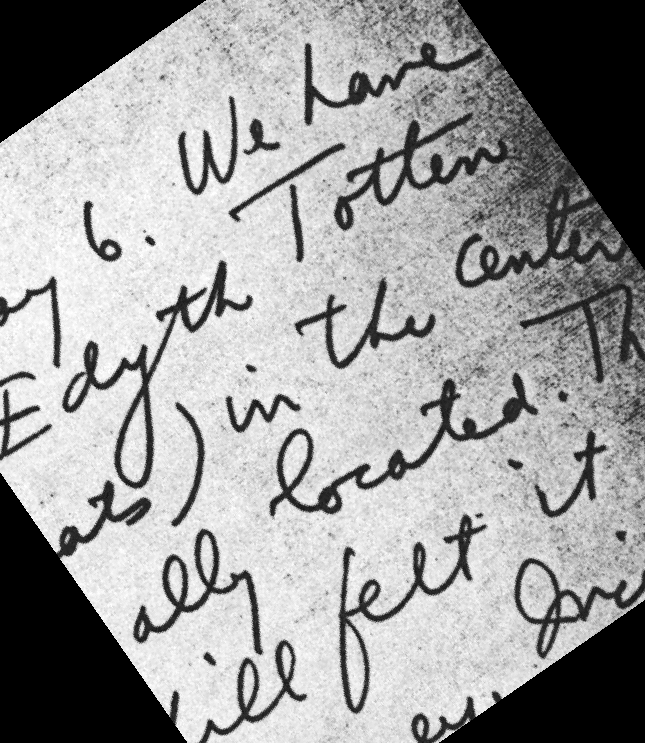 ay 6. We have
Edyth Totten
ats) in the center
ally located. Th
ill felt it